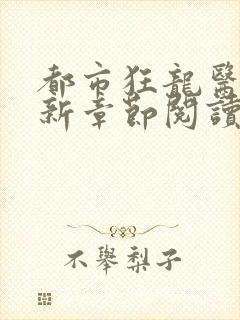 都市狂龍醫
新章節閱讀
不舉梨子